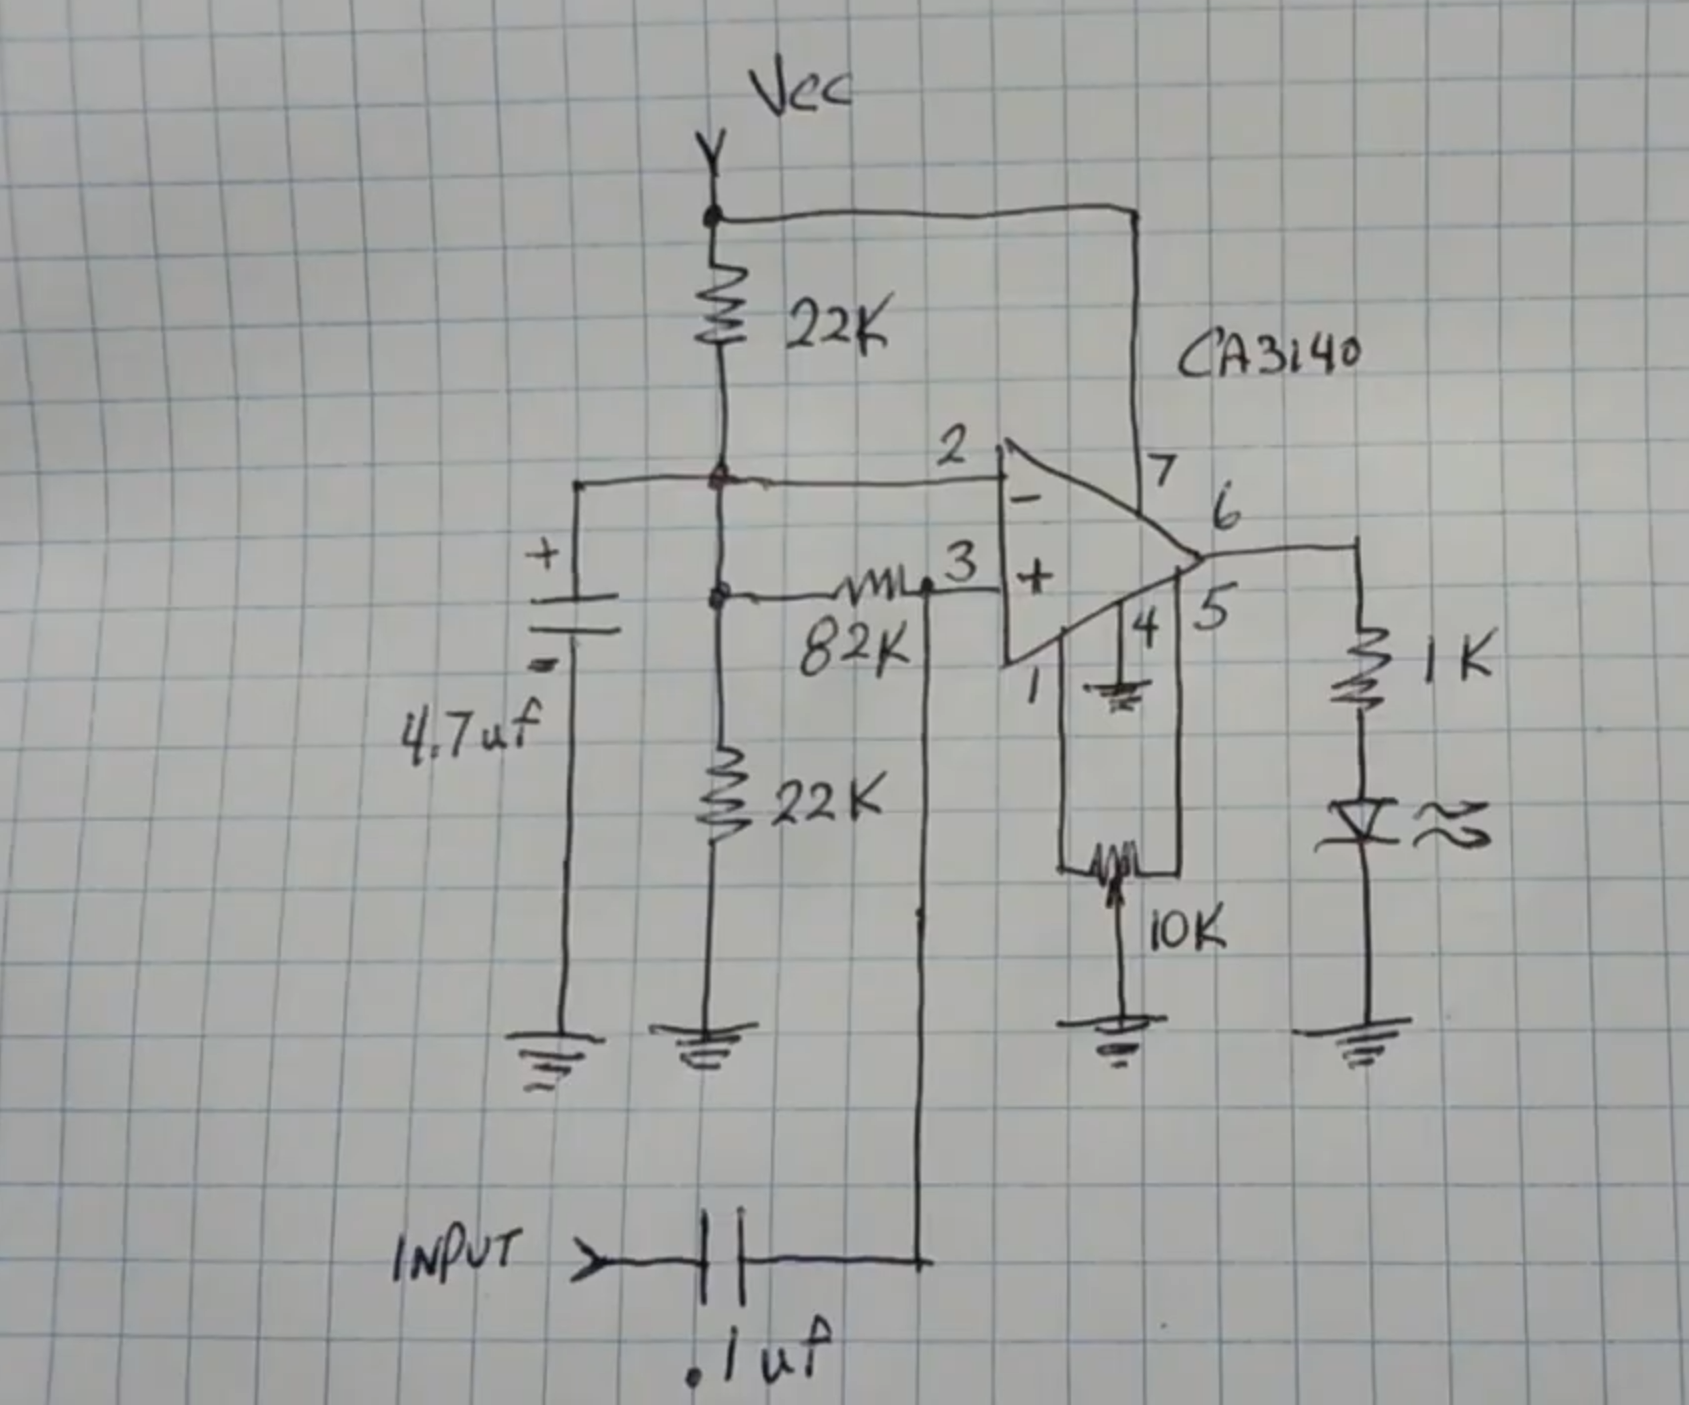 Vcc
22K
CA3140
2
-
7
6
+
3
+
82K
4
5
1
1K
-
4.7uf
22K
10K
INPUT
.1uf